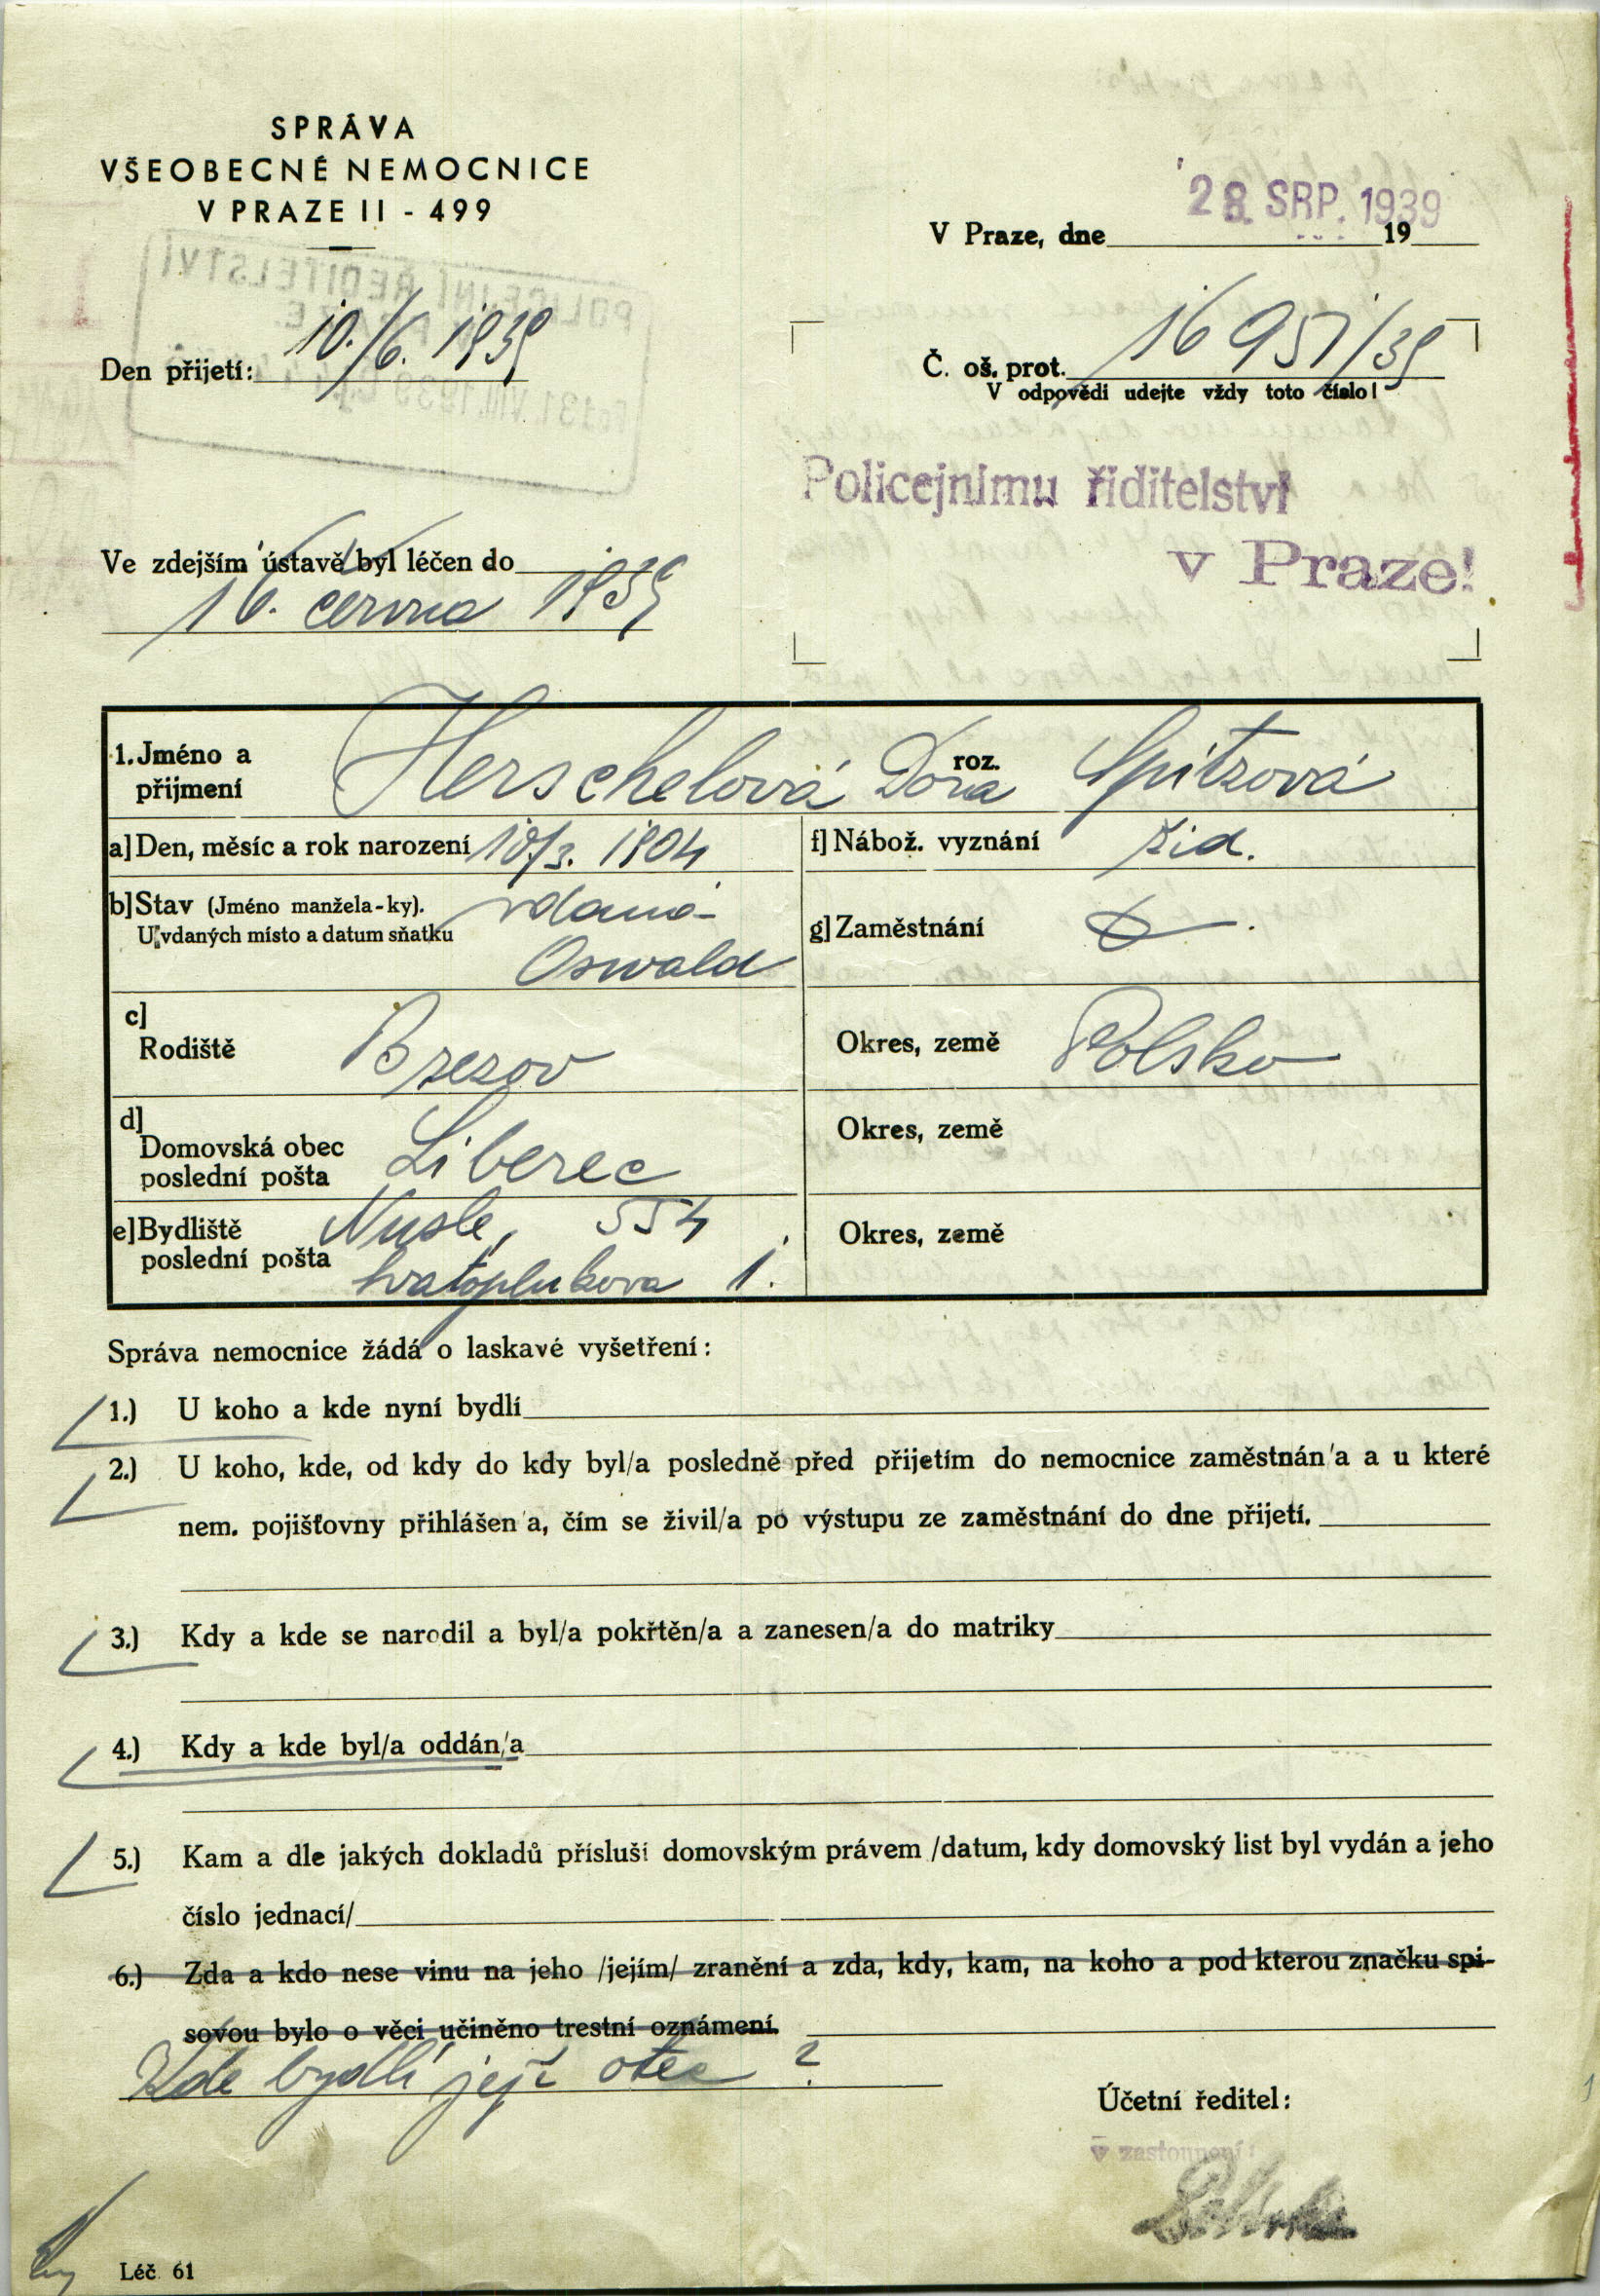 SPRÁVA
VŠEOBECNÉ NEMOCNICE
V PRAZE II - 499
28. SRP. 1939
V Praze, dne 19
POLICEJNÍ ŘEDITELSTVÍ
Den přijetí: 10./6. 1939
Č. oš. prot. 16951/39
V odpovědi udejte vždy toto číslo!
Policejnímu řiditelství
v Praze!
Ve zdejším ústavě byl léčen do
16. června 1939
1. Jméno a příjmení Herschelová Dora roz. Spitzová
a] Den, měsíc a rok narození 10/3. 1904
f] Nábož. vyznání žid.
b] Stav (Jméno manžela-ky). vdaná
U vdaných místo a datum sňatku Oswald
g] Zaměstnání
c]
Rodiště Brzezov
Okres, země Polsko
d]
Domovská obec
poslední pošta Liberec
Okres, země
e] Bydliště Nusle, 554
poslední pošta Svatoplukova 1.
Okres, země
Správa nemocnice žádá o laskavé vyšetření:
1.) U koho a kde nyní bydlí
2.) U koho, kde, od kdy do kdy byl/a posledně před přijetím do nemocnice zaměstnán/a a u které
nem. pojišťovny přihlášen a, čím se živil/a po výstupu ze zaměstnání do dne přijetí.
3.) Kdy a kde se narodil a byl/a pokřtěn/a a zanesen/a do matriky
4.) Kdy a kde byl/a oddán/a
5.) Kam a dle jakých dokladů přísluší domovským právem /datum, kdy domovský list byl vydán a jeho
číslo jednací/
6.) Zda a kdo nese vinu na jeho /jejím/ zranění a zda, kdy, kam, na koho a pod kterou značku spi-
sovou bylo o věci učiněno trestní oznámení.
Kde bydlí její otec ?
Účetní ředitel:
v zastoupení:
Léč. 61